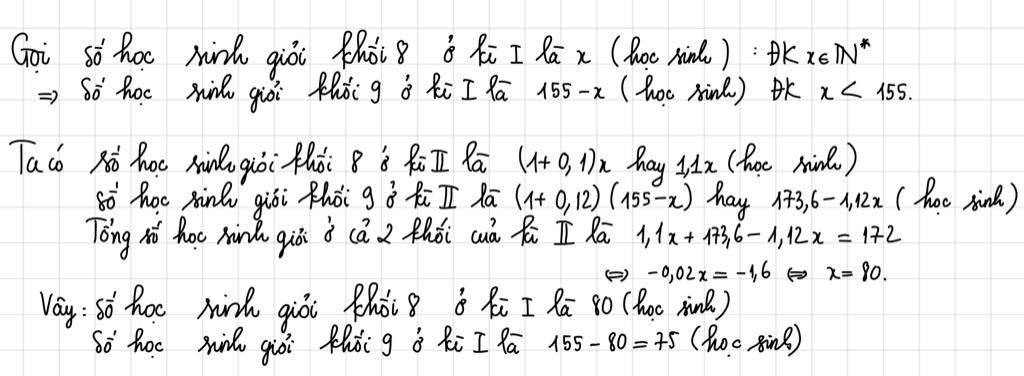 Gọi số học sinh giỏi khối 8 ở kì I là x (học sinh) : ĐK x∈ℕ*
⇒ Số học sinh giỏi khối 9 ở kì I là 155-x (học sinh) ĐK x < 155.
Ta có số học sinh giỏi khối 8 ở kì II là (1+0,1)x hay 1,1x (học sinh)
số học sinh giỏi khối 9 ở kì II là (1+0,12)(155-x) hay 173,6-1,12x (học sinh)
Tổng số học sinh giỏi ở cả 2 khối của kì II là 1,1x+173,6-1,12x = 172
⇔ -0,02x = -1,6 ⇔ x = 80.
Vậy : Số học sinh giỏi khối 8 ở kì I là 80 (học sinh)
Số học sinh giỏi khối 9 ở kì I là 155-80=75 (học sinh)